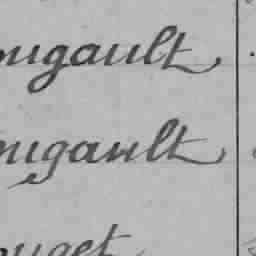 ougault,
ougault,
ouget,